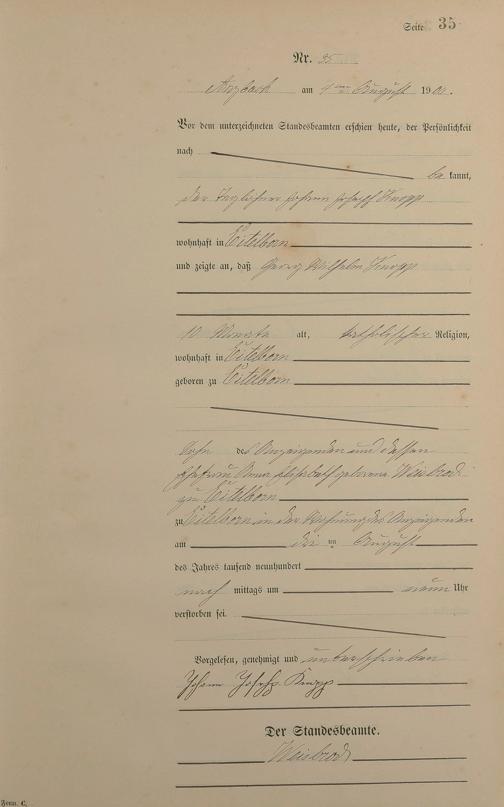 Seite 35
Nr. 35
Arzbach am 4ten August 1900.
Vor dem unterzeichneten Standesbeamten erschien heute, der Persönlichkeit
nach
bekannt,
der Taglöhner Johann Joseph Knopp
wohnhaft in Eitelborn
und zeigte an, daß Georg Wilhelm Knopp
10 Monate alt, katholischer Religion,
wohnhaft in Eitelborn
geboren zu Eitelborn
Sohn des Anzeigenden und dessen
Ehefrau Anna Elisabeth geborene Weisbrod
zu Eitelborn
zu Eitelborn in der Wohnung des Anzeigenden
am August
des Jahres tausend neunhundert
nach mittags um neun Uhr
verstorben sei.
Vorgelesen, genehmigt und unterschrieben
Johann Joseph Knopp
Der Standesbeamte.
Weisbrod
Form. C.